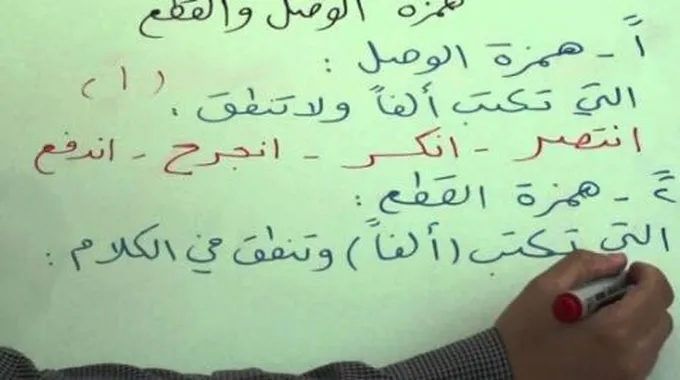 همزة الوصل والقطع
١ - همزة الوصل :
التي تكتب ألفاً ولا تنطق : ( ا )
انتصر - انكسر - انجرح - اندفع
٢ - همزة القطع :
التي تكتب (ألفاً) وتنطق في الكلام :